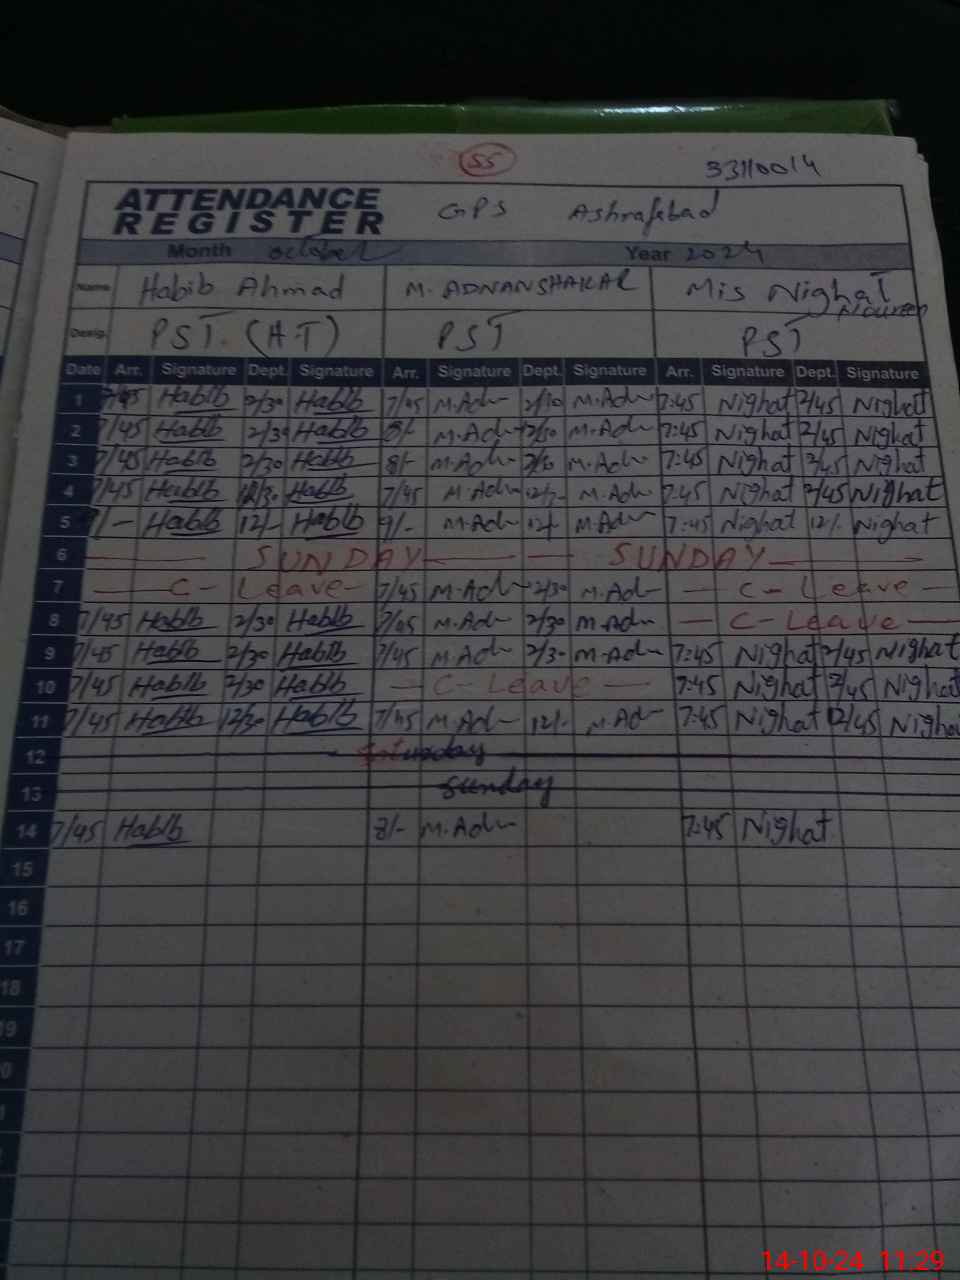 55
33110014
ATTENDANCE REGISTER GPS Ashrafabad
Month october Year 2024
Name Habib Ahmad M. ADNANSHAKAR Mis Nighat Noureen
Desig. PST. (H.T) PST PST
Date Arr. Signature Dept. Signature Arr. Signature Dept. Signature Arr. Signature Dept. Signature
1 7/45 Habib 2/30 Habib 7/45 M.Adn M.Adn 7:45 Nighat 2/45 Nighat
2 7/45 Habib 2/30 Habib 8/- M.Adn M.Adn 7:45 Nighat 2/45 Nighat
3 7/45 Habib 2/30 Habib 8/- M.Adn 2/30 M.Adn 7:45 Nighat 2/45 Nighat
4 7/45 Habib 12/30 Habib 7/45 M.Adn 12/- M.Adn 7:45 Nighat 2/45 Nighat
5 8/- Habib 12/- Habib M.Adn 12/- M.Adn 7:45 Nighat 12/- Nighat
6 SUNDAY SUNDAY
7 C- Leave 7/45 M.Adn 2/30 M.Adn C- Leave
8 7/45 Habib 2/30 Habib 7/45 M.Adn 2/30 M.Adn C- Leave
9 7/45 Habib 2/30 Habib 7/45 M.Adn 2/30 M.Adn 7:45 Nighat 2/45 Nighat
10 7/45 Habib 2/30 Habib C- Leave 7:45 Nighat 2/45 Nighat
11 7/45 Habib 12/30 Habib 7/45 M.Adn 12/- M.Adn 7:45 Nighat 12/45 Nighat
12 Saturday
13 Sunday
14 7/45 Habib 8/- M.Adn 7:45 Nighat
15
16
17
18
19
14-10-24 11:29